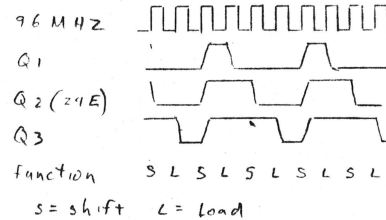 96 MHZ
Q1
Q2 (24E)
Q3
function S L S L S L S L S L
S = shift L = Load